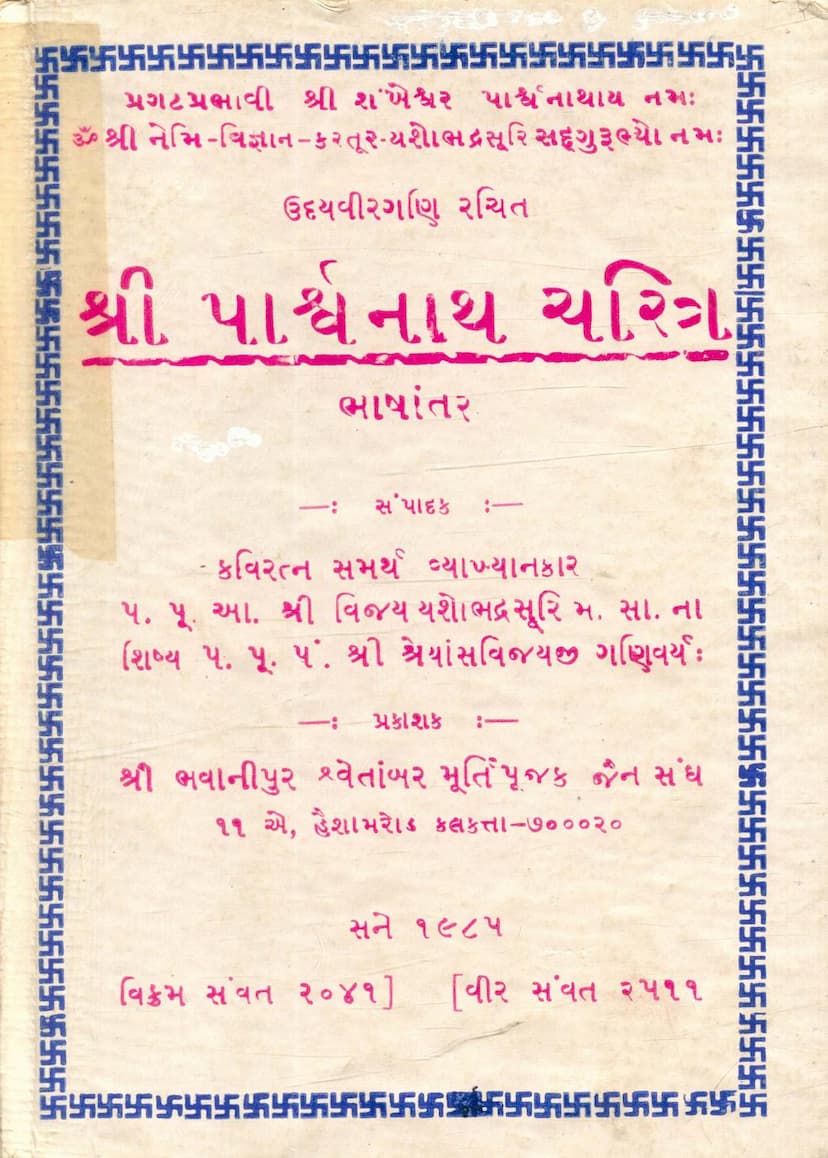 પ્રગટપ્રભાવી શ્રી શંખેશ્વર પાર્શ્વનાથાય નમઃ
ૐ શ્રી નેમિ-વિજ્ઞાન-કસ્તૂર-યશોભદ્રસૂરિ સદ્દગુરૂભ્યો નમઃ
ઉદયવીરગણિ રચિત
શ્રી પાર્શ્વનાથ ચરિત્ર
ભાષાંતર
—: સંપાદક :—
કવિરત્ન સમર્થ વ્યાખ્યાનકાર
પ. પૂ. આ. શ્રી વિજય યશોભદ્રસૂરિ મ. સા. ના
શિષ્ય પ. પૂ. પં. શ્રી શ્રેયાંસવિજયજી ગણિવર્યઃ
—: પ્રકાશક :—
શ્રી ભવાનીપુર શ્વેતાંબર મૂર્તિપૂજક જૈન સંઘ
૧૧ એ, હૈશામરોડ કલકત્તા-૭૦૦૦૨૦
સને ૧૯૮૫
વિક્રમ સંવત ૨૦૪૧] [વીર સંવત ૨૫૧૧